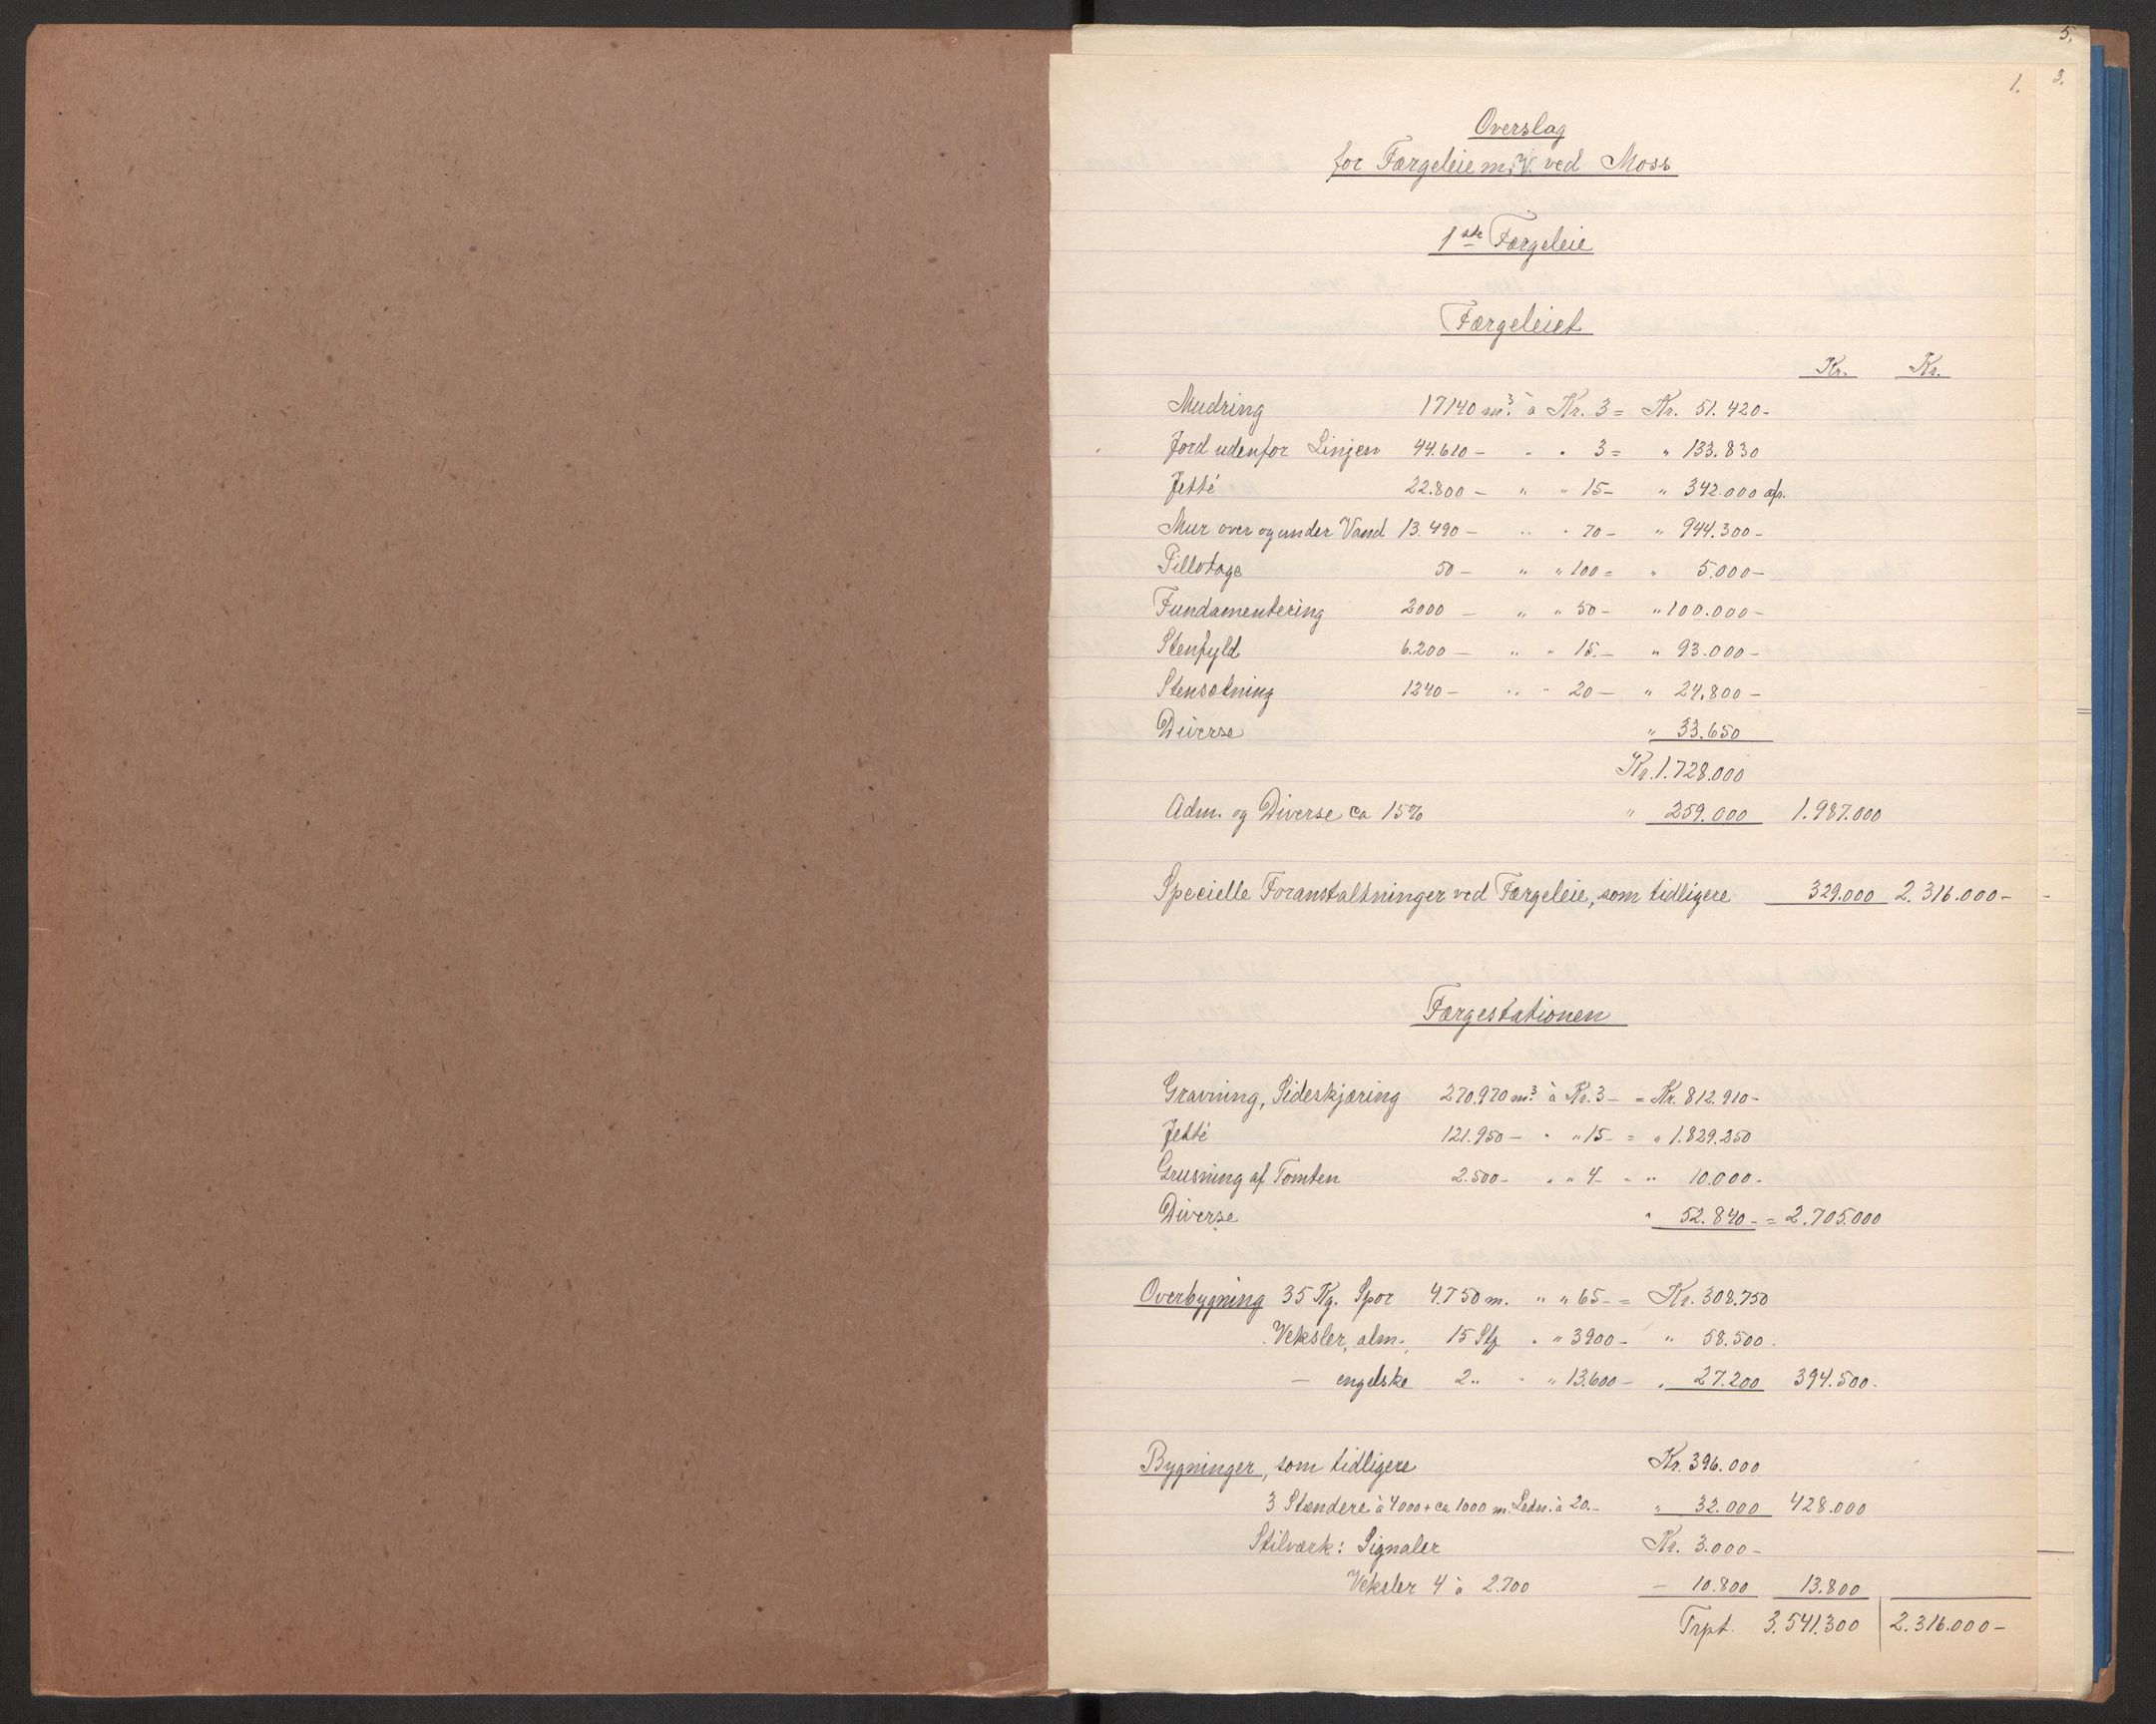 5.
1. 3.
Overslag
for Færgeleie m.V. ved Moss
1ste Færgeleie
Færgeleiet
Kr. Kr.
Mudring 17140 m³. à Kr. 3 = Kr. 51.420-
Jord udenfor Linjen 44.610 - " " 3 = " 133.830
Jetté 22.800 - " " 15 - " 342.000
Mur over og under Vand 13.490 - " " 70 - " 944.300 -
Pillotage 50 - " " 100 = " 5.000 -
Fundamentering 2000 - " " 50 - " 100.000 -
Stenfyld 6.200 - " " 15. - " 93.000 -
Stensætning 1240 - " " 20 - " 24.800 -
Diverse " 33.650
Kr. 1.728.000
Adm. og Diverse ca 15% " 259.000 1.987.000
Specielle Foranstaltninger ved Færgeleie, som tidligere 329.000 2.316.000 -
Færgestationen
Gravning, Sideskjæring 270.970 m³. à Kr. 3 - = Kr. 812.910 -
Jetté 121.950 - " " 15 - = " 1.829.250
Grusning af Tomten 2.500 - " " 4 - - " 10.000 -
Diverse " 52.840 - = 2.705.000
Overbygning 35 Kg. Spor 4.750 m. " " 65 - = Kr. 308.750
Veksler, alm. 15 Stk " " 3900 - " 58.500.
- engelske 2 " " " 13.600 - " 27.200 394.500.
Bygninger, som tidligere Kr. 396.000
3 Stændere à 4000 + ca 1000 m. Ledn. à 20.- " 32.000 428.000
Stilværk: Signaler Kr. 3.000 -
Veksler 4 à 2.700 - 10.800 13.800
Trpt. 3.541.300 2.316.000 -